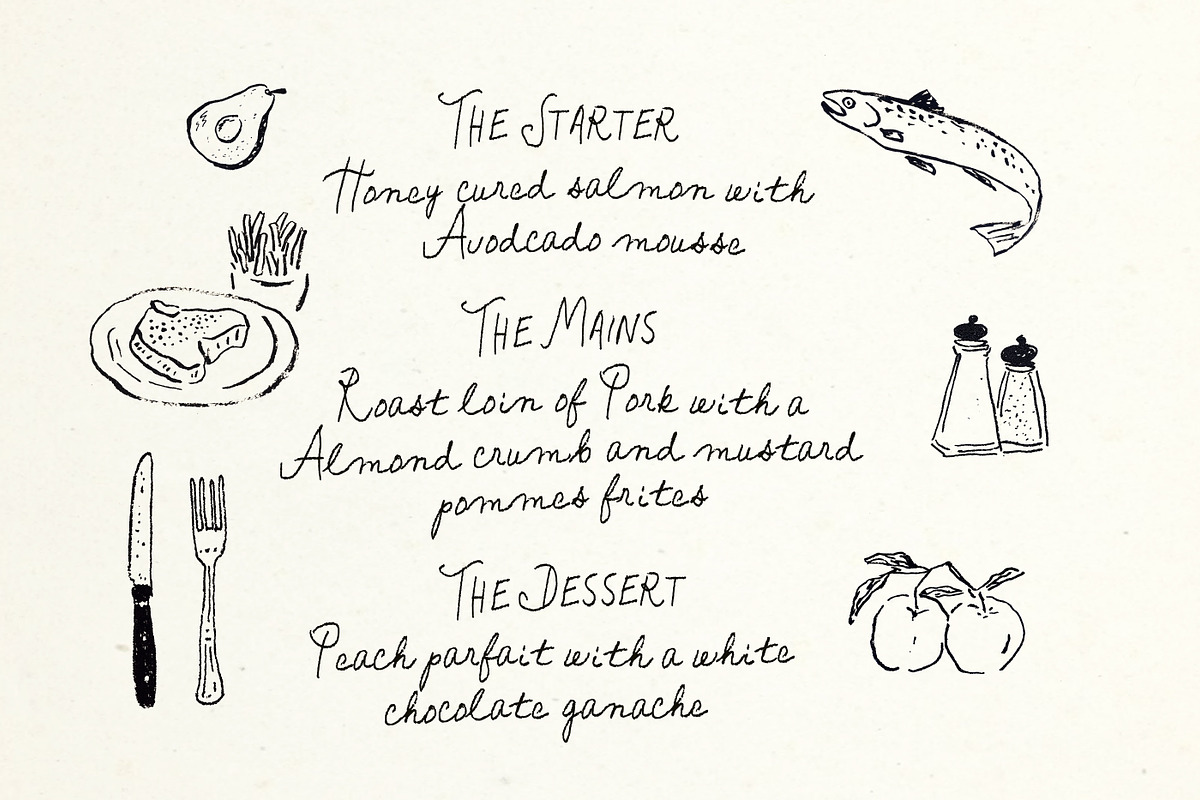 THE STARTER
Honey cured salmon with
Avodcado mousse
THE MAINS
Roast loin of Pork with a
Almond crumb and mustard
pommes frites
THE DESSERT
Peach parfait with a white
chocolate ganache